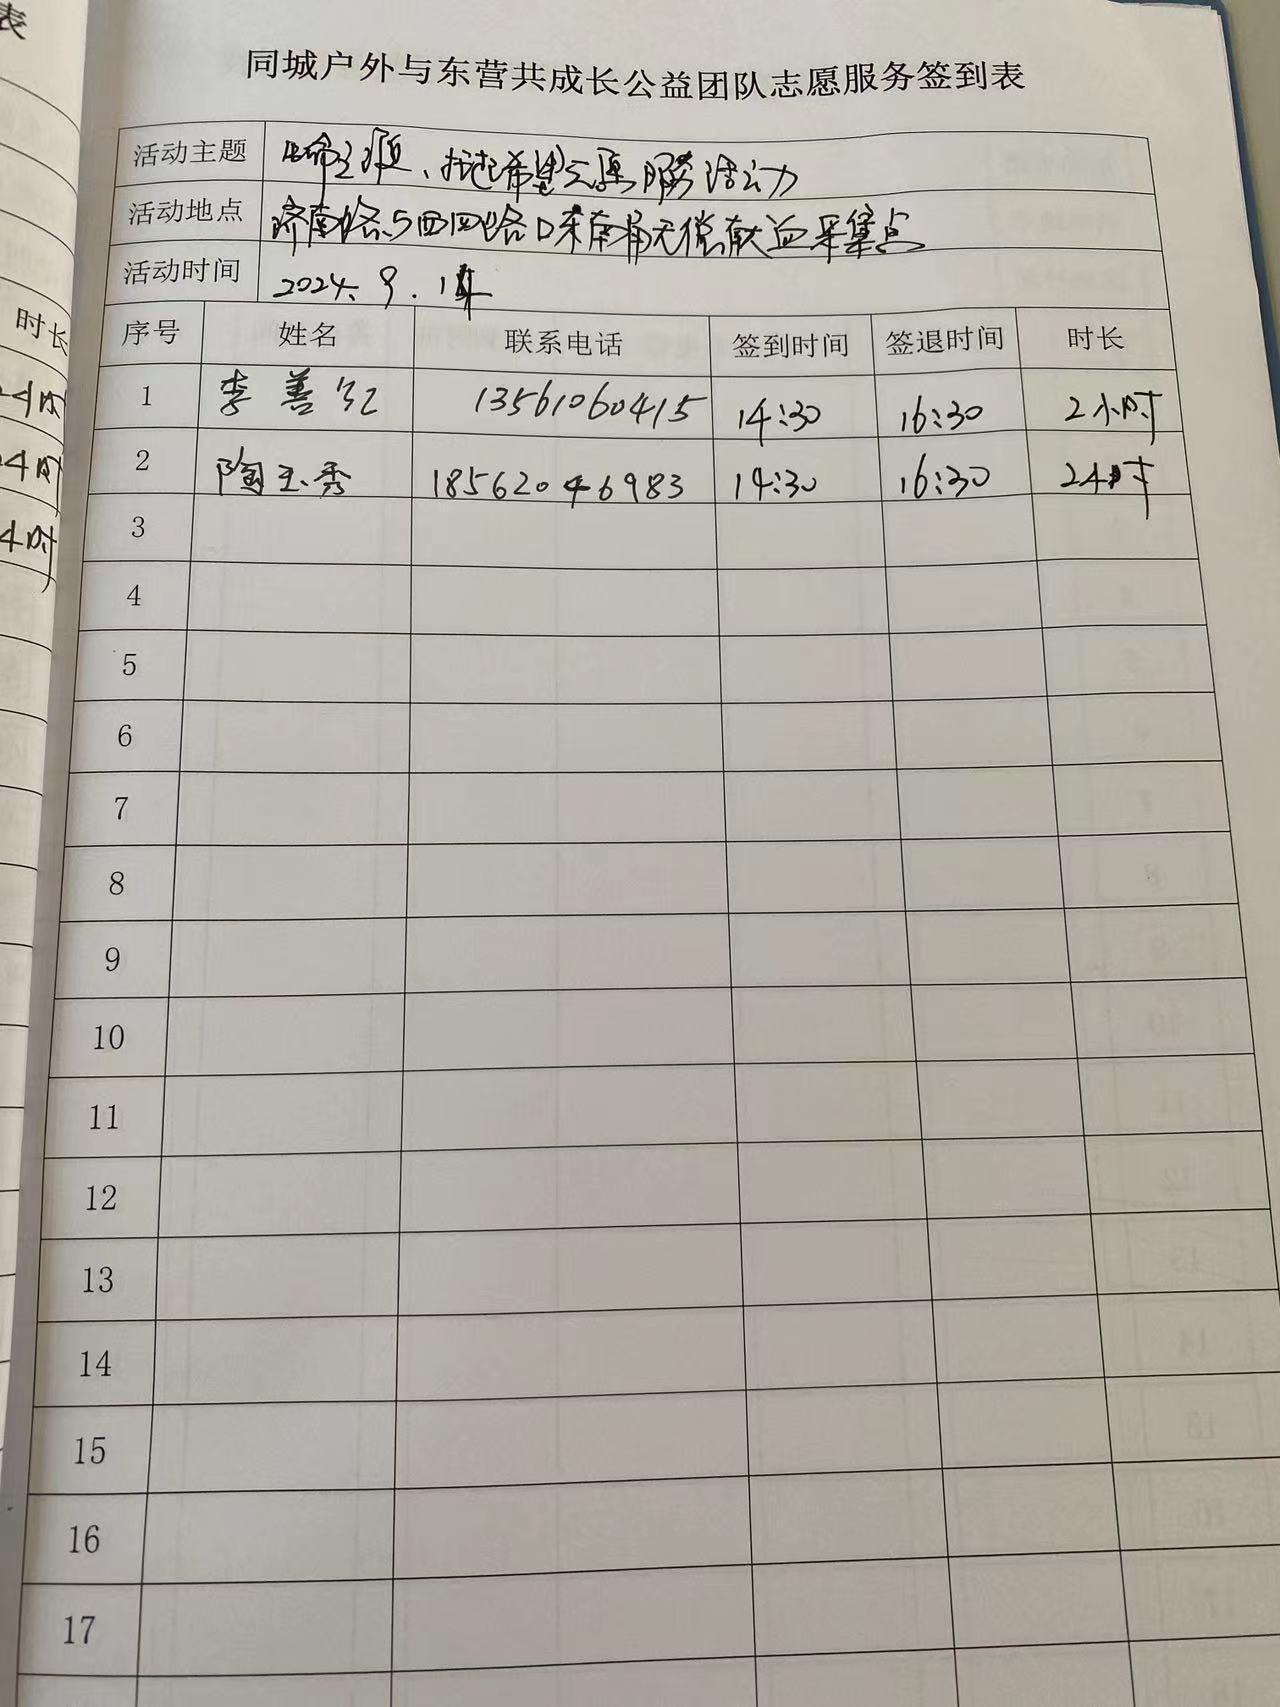 表
时长
24时
24时
4时
同城户外与东营共成长公益团队志愿服务签到表
活动主题 生命之源、托起希望志愿服务活动
活动地点 济南路与西四路口东南角无偿献血采集点
活动时间 2024.9.
序号 姓名 联系电话 签到时间 签退时间 时长
1 李善 13561060415 14:30 16:30 2小时
2 陶玉秀 18562046983 14:30 16:30 2小时
3
4
5
6
7
8
9
10
11
12
13
14
15
16
17